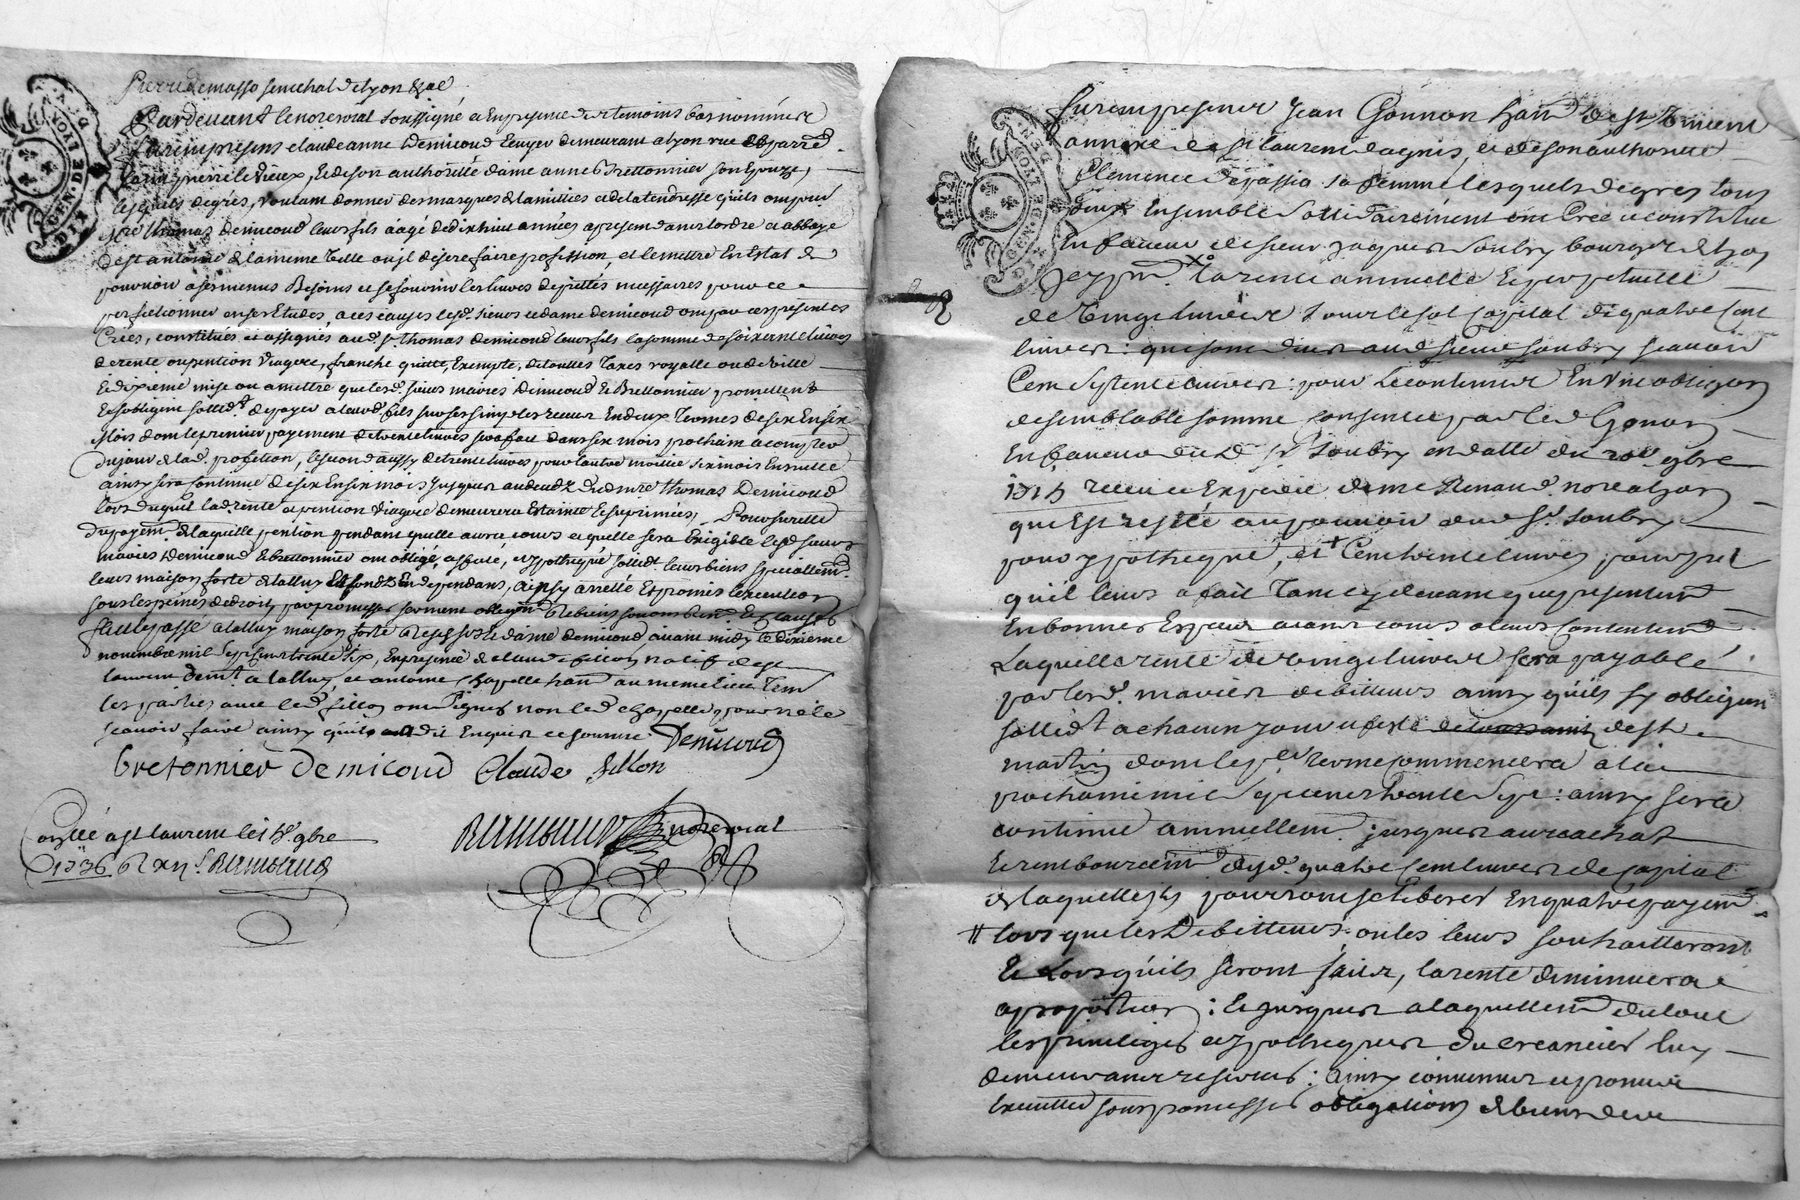 GEN. DE LION
DIX DEN.
Pierre de masso senechal de lyon &
Pardevant le no.re royal soussigné et En presence des temoins bas nommés
furent presens claude anne Demicoud Ecuyer demeurant a lyon rue
parroisse st pierre le vieux, Et de son authorité dame anne Brettonnier son Epouze,
lesquels de grés, voulant donner des marques de lamitiés et de la tendresse qu'ils ont pour
thomas demicoud leur fils aagé de dixhuit années a present dans lordre et abbaye
de st antoine de la meme Ville ou jl desire faire profession, et le mettre En Estat de
pourvoir a ses menus Besoins et se fournir les livres de piettés necessaires pour se
perfectionner En ses Etudes, a ces causes lesd. sieurs et dame demicoud ont par ces presentes
Créés, constitués et assignés aud. sr thomas demicoud leur fils la somme de soixante livres
de rente ou pention Viagere, franche quitte, Exempte, de touttes Taxes royalle ou de Ville
Et dixieme mise ou a mettre que lesd. sieurs mariés Demicoud et Brettonnier promettent
Et sobligent sollid.t de payer a leurd. fils sur ses simples receus En deux Termes de six En six
Mois dont le premier payement de trente livres sera fait dans six mois prochain a compter
du jour de lad. profession, le second aussy de trente livres pour lautre moitié six mois Ensuitte
ainsy sera continué de six En six mois jusques au decedz dud. frere thomas Demicoud
lors duquel lad. rente et pention Viagere demeurera Estainte Et suprimée, Pour surette
du payem.t de laquelle pention pendant quelle aura cours et quelle sera Exigible lesd. sieurs
mariés Demicoud Et brettonnier ont obligé, affecté, et ypothequé sollid.t leurs biens speciallem.t
leurs maison forte de lalluy Et fondz En dependans, Ainsy arresté Et promis l'executer
sous les peines de droit, par promesses serment obligons de biens soumissions Et clauses
fait et passé a lalluy maison forte desd. sr et dame demicoud avant midy le dixieme
novembre mil sept cent trente six, En presence de claude fillon natif de st
laurent dem.t a lalluy et antoine chapelle hant. au meme lieu Tem.
les parties avec led. fillon ont signés non led. chapelle pour ne le
scavoir faire ainsy qu'il a dit Enquis et sommé. Demicoud
bretonnier Demicoud Claude fillon
Conllé a st laurent le 15e 9bre
1736
no.re royal
furent presens Jean Gonnon hant. de st Vincent
annexe de st laurent dagnis, et de son authorité
Clemence depassio sa femme lesquels de gres tous
deux Ensemble sollidairement ont Créé et constitué
En faveur de sieur jaques Soubry bourgeois de lyon
la rente annuelle Et perpetuelle
de Vingt livres sous le sol capital de quatre cent
livres: que sont dus aud. sieur Soubry scavoir
Cent Septente livres: pour le contenus En Une obligaon
de semblable somme consentie par led. Gonon
En faveur dud. sr Soubry en datte du 9bre
1715 receue et Expediée de me Renaud no.re a lyon
qui Est resté au pouvoir dud. sr Soubry
pour ypotheque, et Cent trente livres pour pret
qu'il leurs a fait Tant cy devant que presentem.t
En bonnes Especes ayant cours a leurs Contentem.t
Laquelle rente de Vingt livres sera payable
par lesd. mariés debitteurs ainsy qu'ils sy obligent
sollid.t a chacun jour et feste de st
martin dont le p.er terme commencera a la
prochaine mil sept cent trente sept: ainsy sera
continué annuellem.t jusques au rachat
Et remboursem.t desd. quatre cent livres de capital
de laquelle ils pourront se liberer En quatre payem.t
lors que les Debitteurs ou les leurs souhaitteront
Et Lors qu'ils seront faits, la rente diminuera
a proportion: Et jusques a laquellem.t du tout
les privileges et ypotheques du creancier luy
demeureront reservés: Ainsy convenus et promis
Executter sous promesses obligations de biens